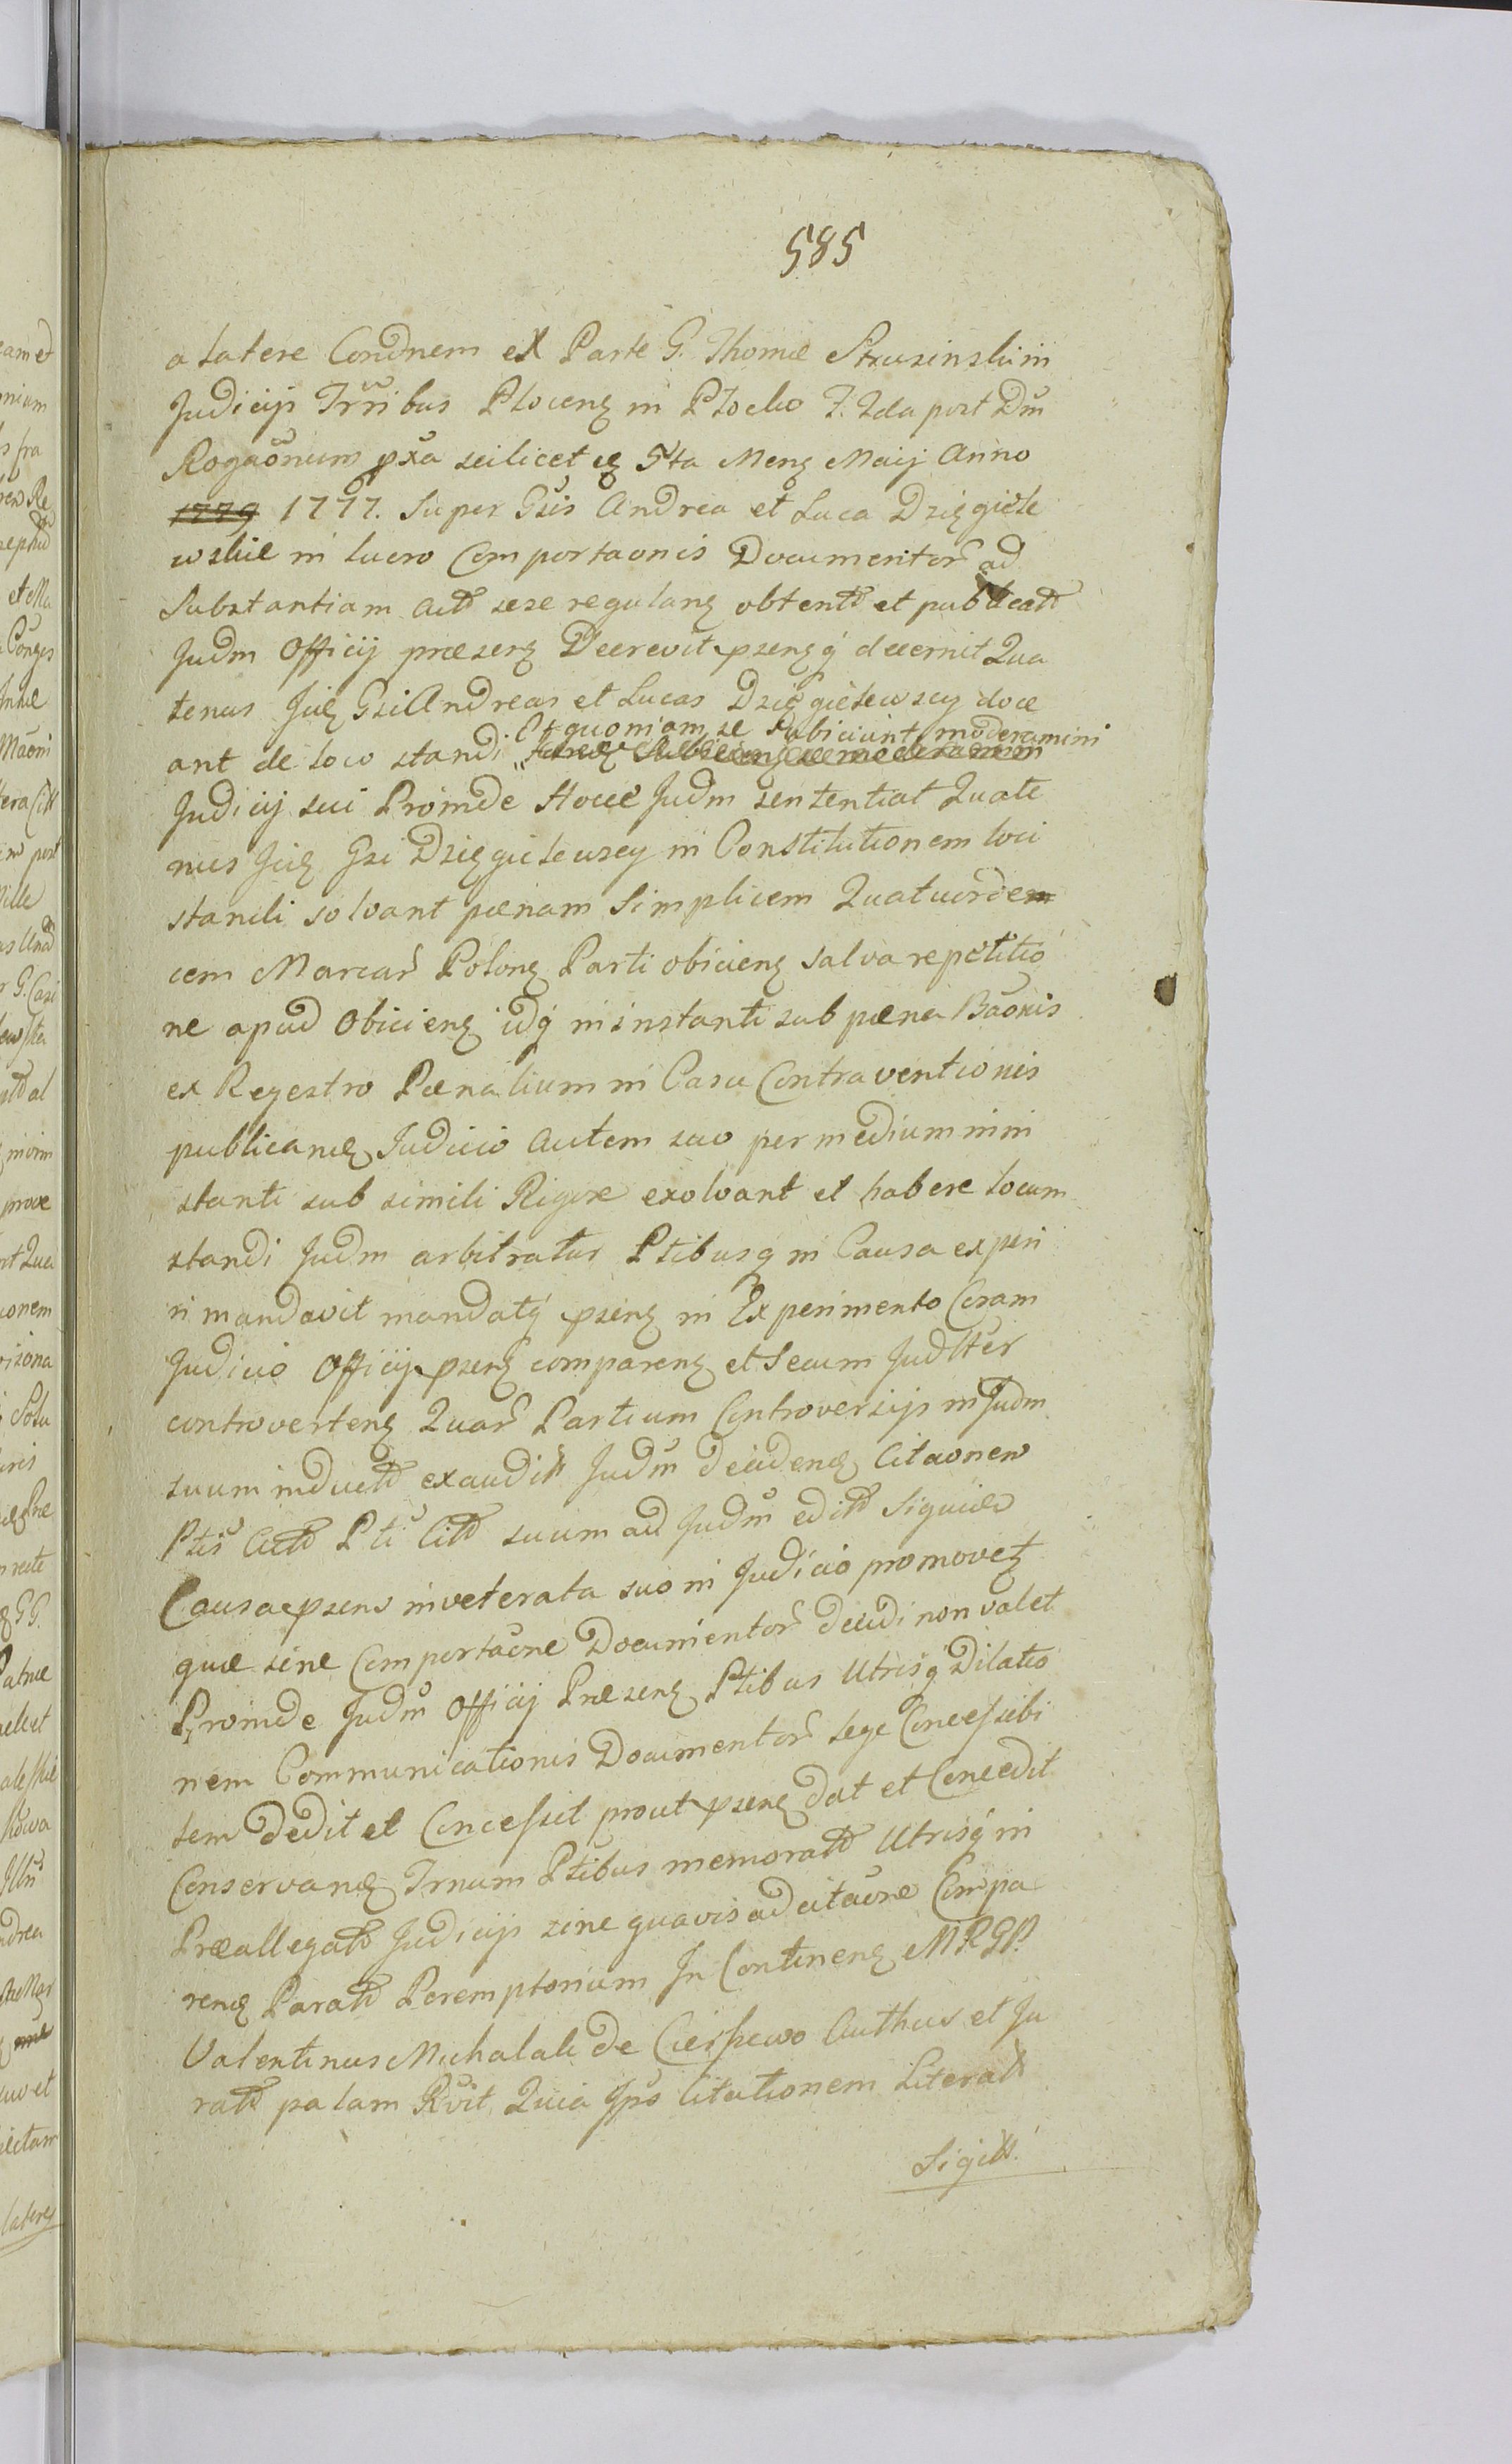 585
a latere Condnem ex Parte G. Thomæ Strusinskim
Judicijs Trribus Plocenś in Plocko F. 2da post Dm
Rogaonum pxa scilicet die 5ta Menś Maij Anno
1779 1777. Super Gsis Andrea et Luca Dzięgiele
wskie in lucro Comportaonis Documentor ad
Substantiam Actt sese regulanś obtentt et publicatt
Judm Officij præsenś Decrevit psensq decernit Qua
tenus Jidē Gsi Andreas et Lucas Dzięgielewscy doce
Et quoniam se subiciunt moderamini
ant de loco standi
Judicij sui Proinde Hocce Judm sententiat Quate
nus Jidē Gsi Dzięgielewscy in Constitutionem loci
standi solvant pœnam simplicem Quatuorde
cem Marcar Polonś Parti obicienś salva repetitio
ne apud Obicienś idq in instanti sub pœna Baonis
ex Regestro Pœnalium in Casu Contraventionis
publicandś Judicio autem suo per medium in in
stanti sub simili Rigore exolvant et habere locum
standi Judm arbitratur Ptibusq in Causa experi
ri mandavit mandatq psenś in Experimento Coram
Judicio Officij psenś comparenś et Secum Judltèr
controvertenś Quar Partium Controversijs in Judm
suum inductt exauditt Judm decidendś Citaonem
Ptis Actt Pti Citt suum ad Judm editt Siquidē
Causa psens inveterata suo in Judicio promovetś
quæ sine Comportaone Documentor decidi non valet
Proinde Judm Officij Præsenś Ptibus Utrisq Dilatio
nem Communicationis Documentor lege Concessibi
lem dedit et Concessit prout psenś dat et Concedit
Conservandś Trnum Ptibus memoratt Utrisq in
Præallegatt Judicijs sine quavis adcitaone Compa
rendś Paratt Peremptorium In Continenś MRGP.
Valentinus Michalak de Ciesszewo Authus et Ju
ratt palam Rvit Quia Jps Citationem Literatt
Sigitt.